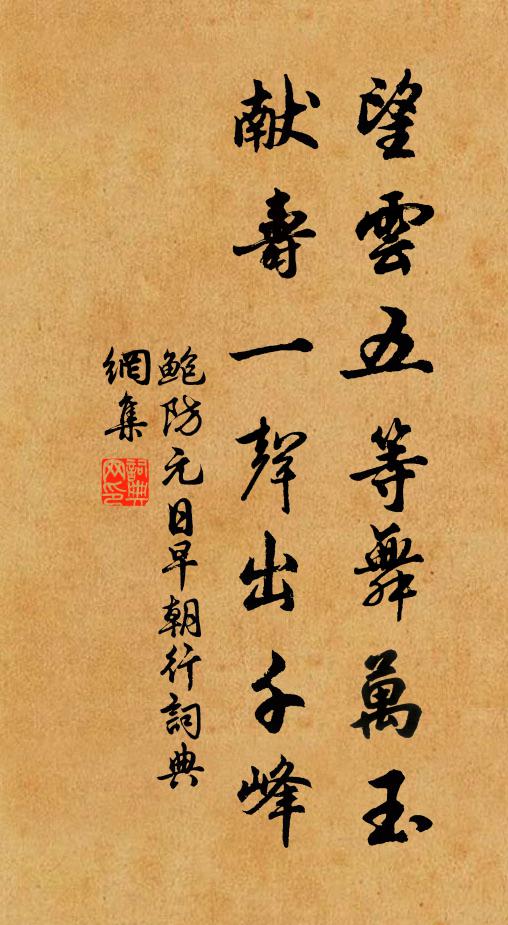 望雲五等舞萬玉
献壽一聲出千峰
鲍防元日早朝行詞典
網集
詞典網印